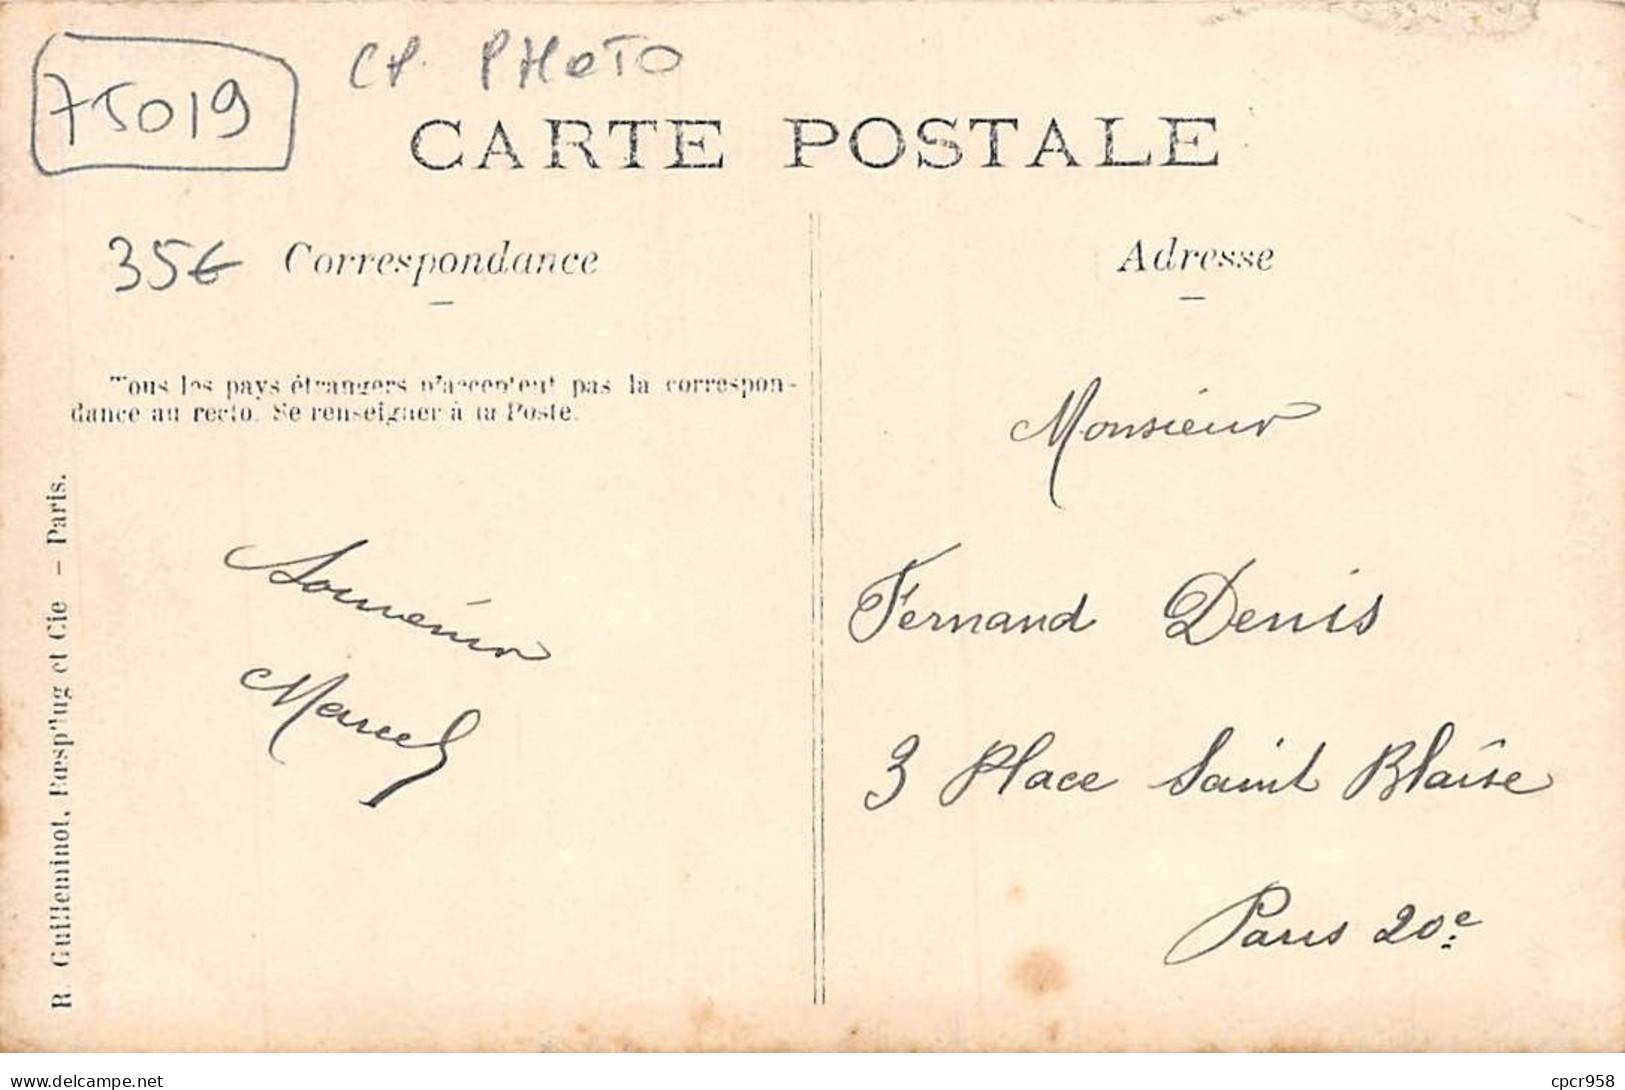 75019
CP. PHOTO
CARTE POSTALE
35€
Correspondance
Adresse
Tous les pays étrangers n'acceptent pas la correspon-
dance au recto. Se renseigner à la Poste.
Souvenir
Marcel
Monsieur
Fernand Denis
3 Place Saint Blaise
Paris 20e
R. Guilleminot, Bœsp'lug et Cie - Paris.
cpcr958